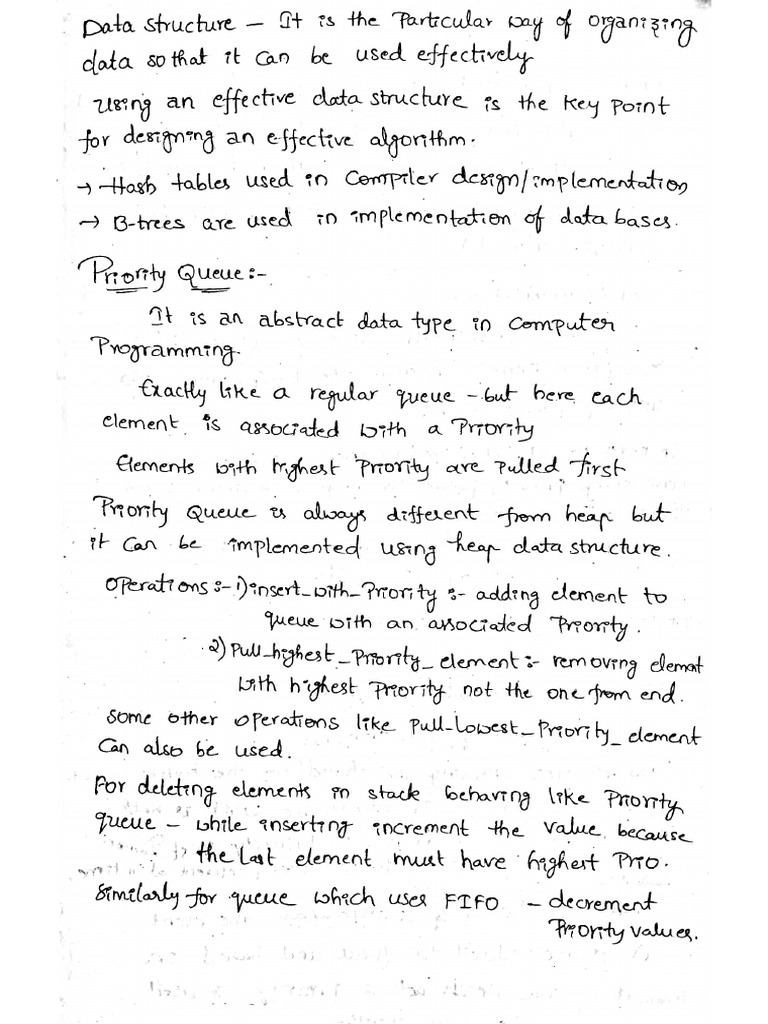 Data structure – It is the Particular way of organizing
data so that it can be used effectively
Using an effective data structure is the key point
for designing an effective algorithm.
→ Hash tables used in Compiler design/implementation
→ B-trees are used in implementation of data bases.
Priority Queue :-
It is an abstract data type in computer
Programming.
Exactly like a regular queue – but here each
element is associated with a Priority
Elements with highest Priority are pulled first
Priority Queue is always different from heap but
it can be implemented using heap data structure.
Operations :- 1) insert_with_Priority :- adding element to
queue with an associated Priority.
2) Pull_highest_Priority_element :- removing elemnt
with highest Priority not the one from end.
Some other operations like Pull-Lowest_Priority_element
Can also be used.
For deleting elements in stack behaving like Priority
queue – while inserting increment the value, because
the last element must have highest Prio.
Similarly for queue which uses FIFO – decrement
Priority values.